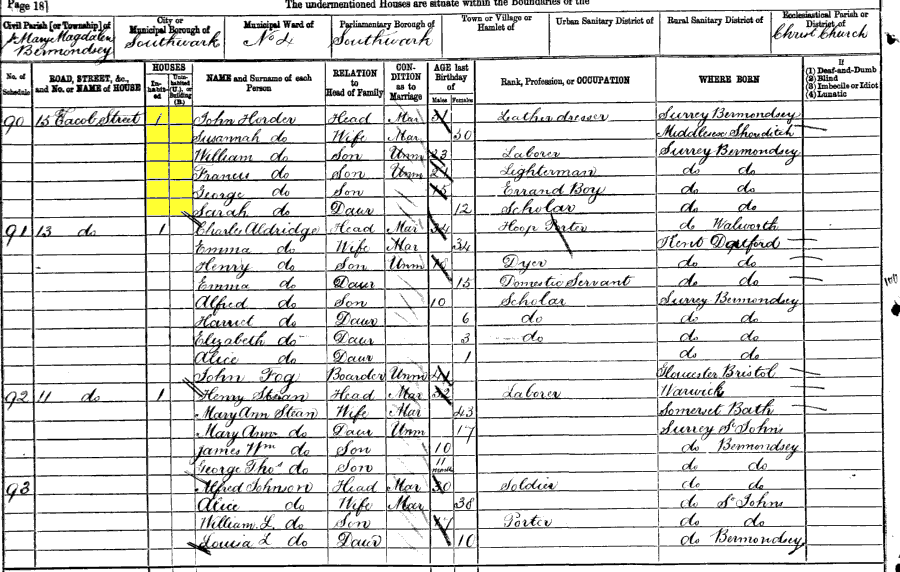 Page 18] The undermentioned Houses are situate within the Boundaries of the
Civil Parish [or Township] of St Mary Magdalen Bermondsey | City or Municipal Borough of Southwark | Municipal Ward of No 4 | Parliamentary Borough of Southwark | Town or Village or Hamlet of | Urban Sanitary District of | Rural Sanitary District of | Ecclesiastical Parish or District of Christ Church
No. of Schedule | ROAD, STREET, &c., and No. or NAME of HOUSE | HOUSES Inhabited | Uninhabited (U.), or Building (B.) | NAME and Surname of each Person | RELATION to Head of Family | CONDITION as to Marriage | AGE last Birthday of Males Females | Rank, Profession, or OCCUPATION | WHERE BORN | If (1) Deaf-and-Dumb (2) Blind (3) Imbecile or Idiot (4) Lunatic
90 15 Jacob Street 1 John Horder Head Mar Leather dresser Surrey Bermondsey
Susannah do Wife Mar 50 Middlesex Shoreditch
William do Son Unm 23 Laborer Surrey Bermondsey
Francis do Son Unm 21 Lighterman do do
George do Son 15 Errand Boy do do
Sarah do Daur 12 Scholar do do
91 13 do 1 Charles Aldridge Head Mar 34 Hoop Porter do Walworth
Emma do Wife Mar 34 Kent Deptford
Henry do Son Unm Dyer do do
Emma do Daur 15 Domestic Servant do do
Alfred do Son 10 Scholar Surrey Bermondsey
Harriet do Daur 6 do do do
Elizabeth do Daur 3 do do do
Alice do Daur 1 do do
John Fog Boarder Unm Gloucester Bristol
92 11 do 1 Henry Stean Head Mar 52 Laborer Warwick
Mary Ann Stean Wife Mar 43 Somerset Bath
Mary Ann do Daur Unm 17 Surrey St Johns
James Wm do Son 10 do Bermondsey
George Thos do Son 11 months do do
93 Alfred Johnson Head Mar 30 Soldier do do
Alice do Wife Mar 38 do St Johns
William L do Son 17 Porter do do
Louisa L do Daur 10 do Bermondsey